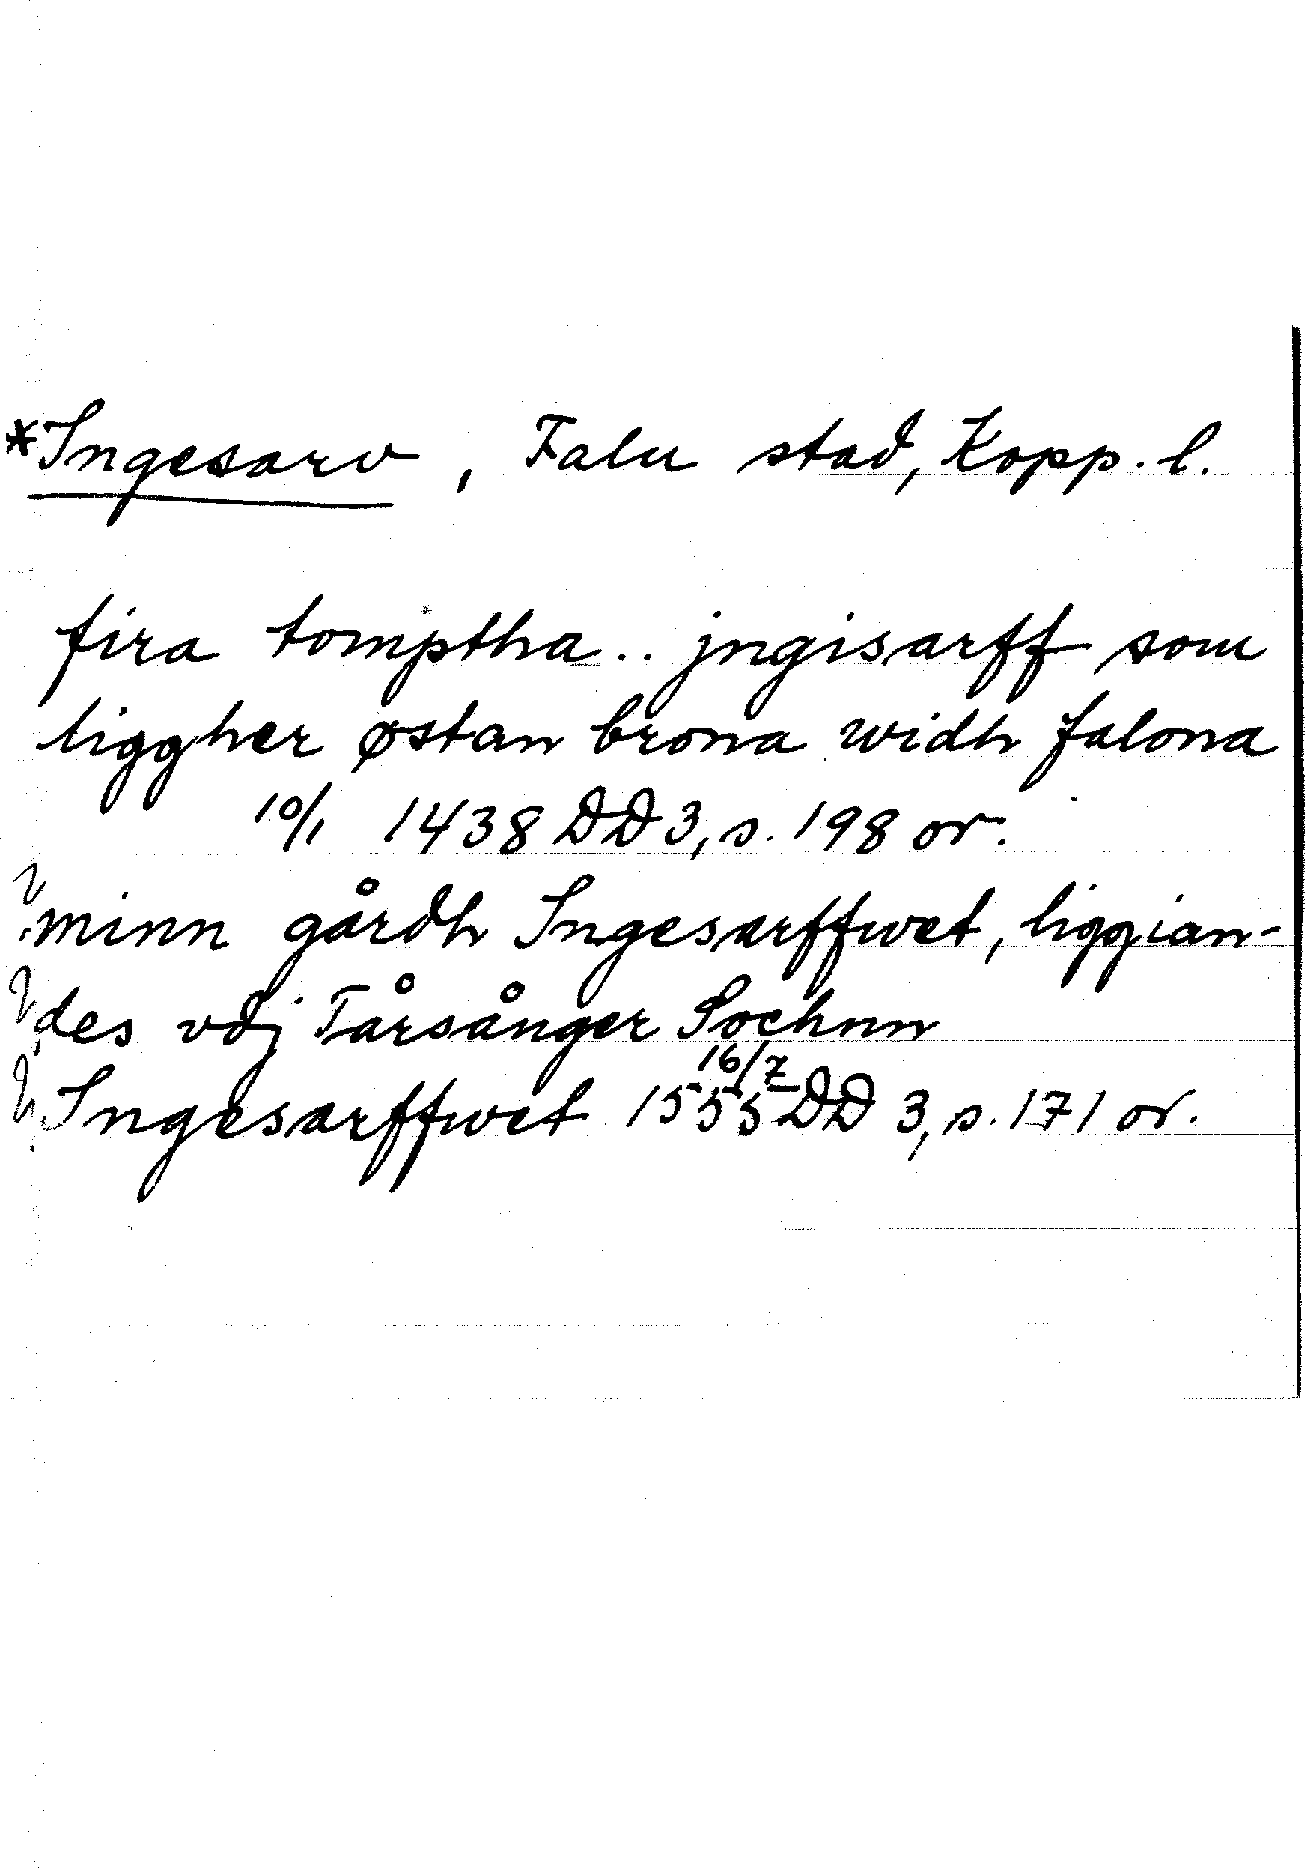 *Ingesarv, Falu stad, Kopp. l.
fira tomptha.. jngisarff som
liggher østan brona widh falona
10/1 1438 DD 3, s. 198 or.
minn gårdh Ingesarffwet, liggian-
des vdj Tårsånger Sochnn
Ingesarffwet 16/7 1555 DD 3, s. 171 or.